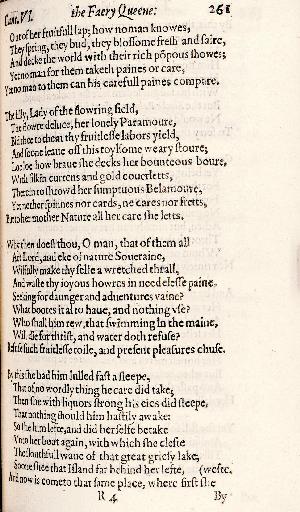 Cant. VI. the Faery Queene: 261
Out of her fruitfull lap; how no man knowes,
They spring, they bud, they blossome fresh and faire,
And decke the world with their rich pōpous showes;
Yet no man for them taketh paines or care,
Yet no man to them can his carefull paines compare.
The lilly, Lady of the flowring field,
The flowre deluce, her louely Paramoure,
Bid thee to them thy fruitlesse labors yield,
And soone leaue off this toylsome weary stoure;
Loe loe how braue she decks her bounteous boure,
With silkin curtens and gold couerletts,
Therein to shrowd her sumptuous Belamoure,
Yet nether spinnes nor cards, ne cares nor fretts,
But to her mother Nature all her care she letts.
Why then doest thou, O man, that of them all
Art Lord, and eke of nature Soueraine,
Wilfully make thy selfe a wretched thrall,
And waste thy ioyous howres in needelesse paine,
Seeking for daunger and aduentures vaine?
What bootes it al to haue, and nothing vse?
Who shall him rew, that swimming in the maine,
Wil die for thrist, and water doth refuse?
Refuse such fruitlesse toile, and present pleasures chuse.
By this she had him lulled fast a sleepe,
That of no wordly thing he care did take,
Then she with liquors strong his eies did steepe,
That nothing should him hastily awake:
So she him lefte, and did herselfe betake
Vnto her boat again, with which she clefte
The slouthfull waue of that great griesy lake,
Soone shee that Island far behind her lefte, (weste.
And now is come to that same place, where first she
R 4 By